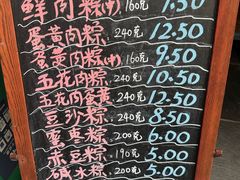 鲜肉粽(中) 160克 7.50
蛋黄肉粽 240克 12.50
蛋黄肉粽(中) 160克 9.50
五花肉粽 240克 10.50
五花肉蛋黄 240克 12.50
豆沙粽 240克 8.50
蜜枣粽 200克 6.00
赤豆粽 190克 5.00
碱水粽 200克 5.00